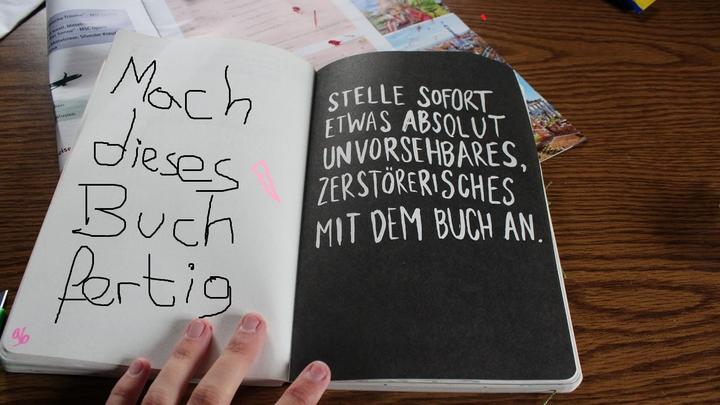 Mach
dieses
Buch
fertig
96
STELLE SOFORT
ETWAS ABSOLUT
UNVORSEHBARES,
ZERSTÖRERISCHES
MIT DEM BUCH AN.